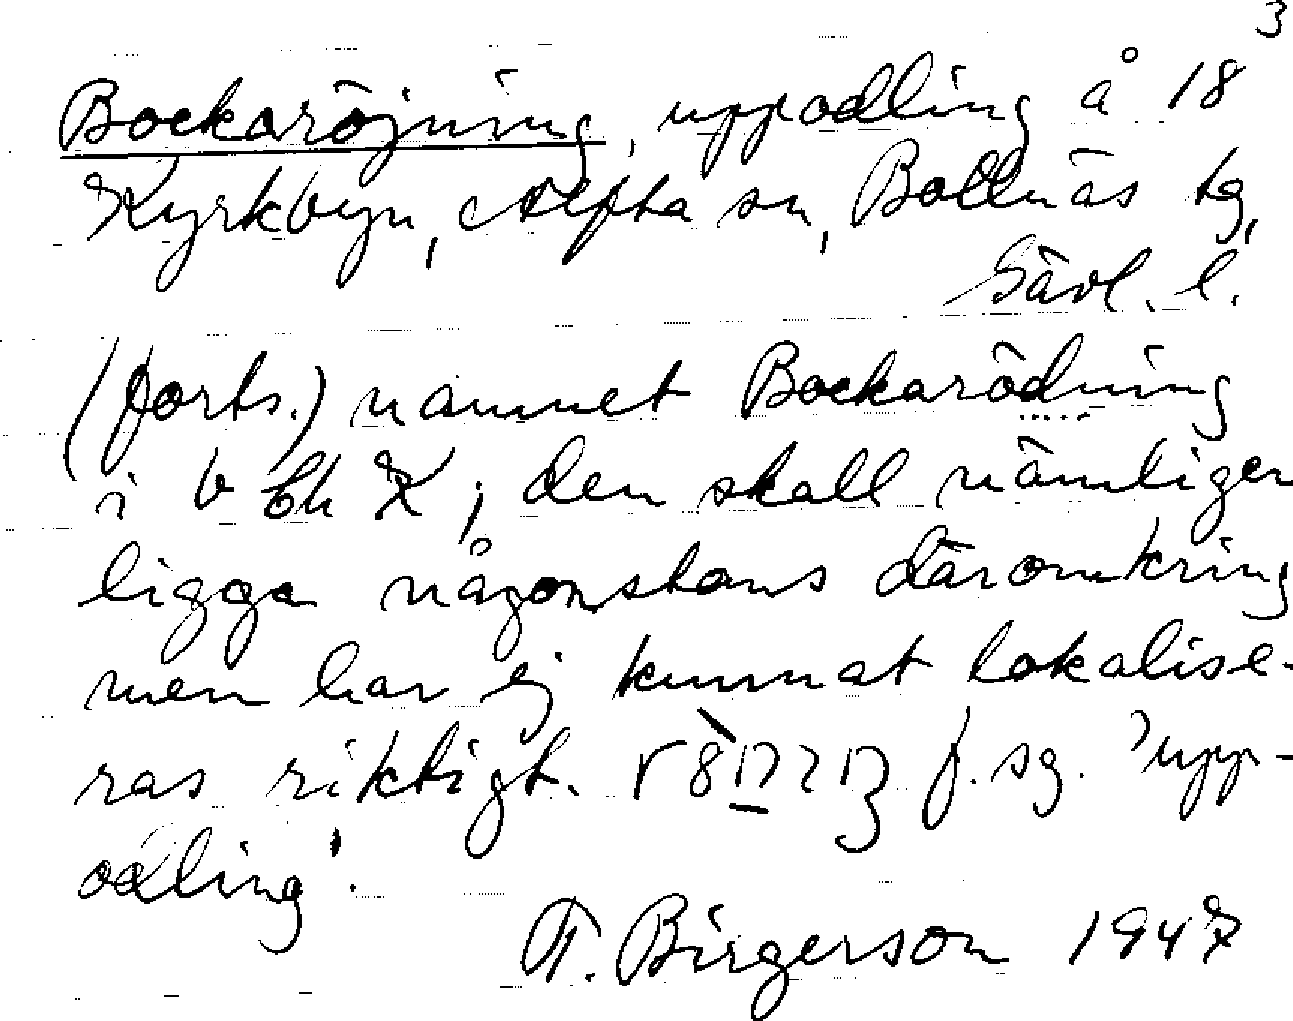 3
Bockaröjning, uppodling å 18
Kyrkbyn, Alfta sn, Bollnäs tg,
Gävl. l.
(forts.) namnet Bockarödning
i v bh X; den skall nämligen
ligga någonstans däromkring
men har ej kunnat lokalise-
ras riktigt. f. sg. 'upp-
odling'.
F. Birgerson 1947